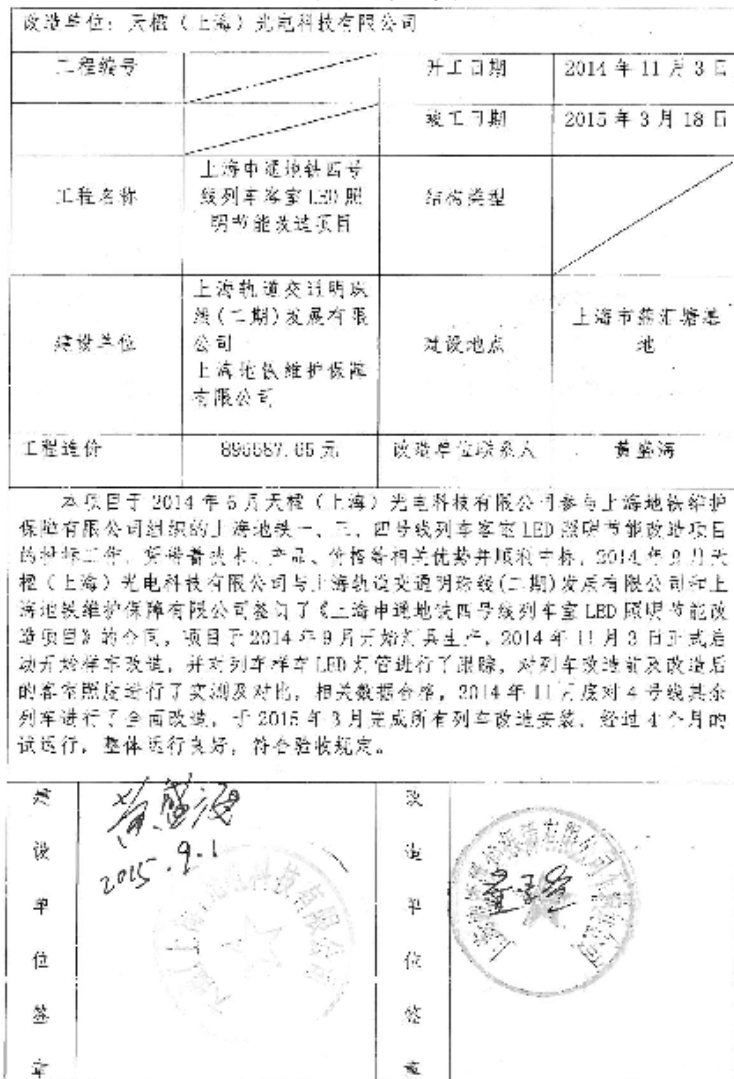 改造单位：天櫂（上海）光电科技有限公司
工程编号 开工日期 2014 年 11 月 3 日
竣工日期 2015 年 3 月 18 日
工程名称 上海申通地铁四号线列车客室 LED 照明节能改造项目 结构类型
建设单位 上海轨道交通明珠线(二期)发展有限公司 上海地铁维护保障有限公司 建设地点 上海市蒲汇塘基地
工程造价 元 改造单位联系人 黄盛海
本项目于 2014 年 6 月天櫂（上海）光电科技有限公司参与上海地铁维护
保障有限公司组织的上海地铁一、三、四号线列车客室 LED 照明节能改造项目
的投标工作，凭借着技术、产品、价格等相关优势并顺利中标，2014 年 9 月天
櫂（上海）光电科技有限公司与上海轨道交通明珠线(二期)发展有限公司和上
海地铁维护保障有限公司签订了《上海申通地铁四号线列车室 LED 照明节能改
造项目》的合同，项目于 2014 年 9 月开始灯具生产，2014 年 11 月 3 日正式启
动开始样车改造，并对列车样车 LED 灯管进行了跟踪，对列车改造前及改造后
的客室照度进行了实测及对比，相关数据合格，2014 年 11 月底对 4 号线其余
列车进行了全面改造，于 2015 年 3 月完成所有列车改造安装，经过 4 个月的
试运行，整体运行良好，符合验收规定。
建设单位签章
黄盛海
2015.9.1
改造单位签章